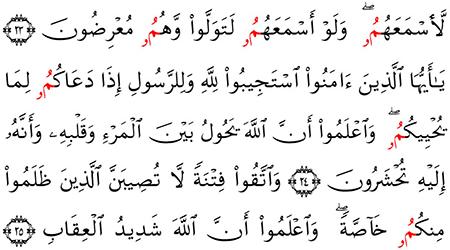 لَّأَسْمَعَهُمُۥۖ وَلَوْ أَسْمَعَهُمُۥ لَتَوَلَّوا۟ وَّهُمُۥ مُعْرِضُونَ ٢٣
يَـٰٓأَيُّهَا ٱلَّذِينَ ءَامَنُوا۟ ٱسْتَجِيبُوا۟ لِلَّهِ وَلِلرَّسُولِ إِذَا دَعَاكُمُۥ لِمَا
يُحْيِيكُمُۥۖ وَٱعْلَمُوٓا۟ أَنَّ ٱللَّهَ يَحُولُ بَيْنَ ٱلْمَرْءِ وَقَلْبِهِۦ وَأَنَّهُۥ
إِلَيْهِ تُحْشَرُونَ ٢٤ وَٱتَّقُوا۟ فِتْنَةً لَّا تُصِيبَنَّ ٱلَّذِينَ ظَلَمُوا۟
مِنكُمُۥ خَآصَّةًۖ وَٱعْلَمُوٓا۟ أَنَّ ٱللَّهَ شَدِيدُ ٱلْعِقَابِ ٢٥